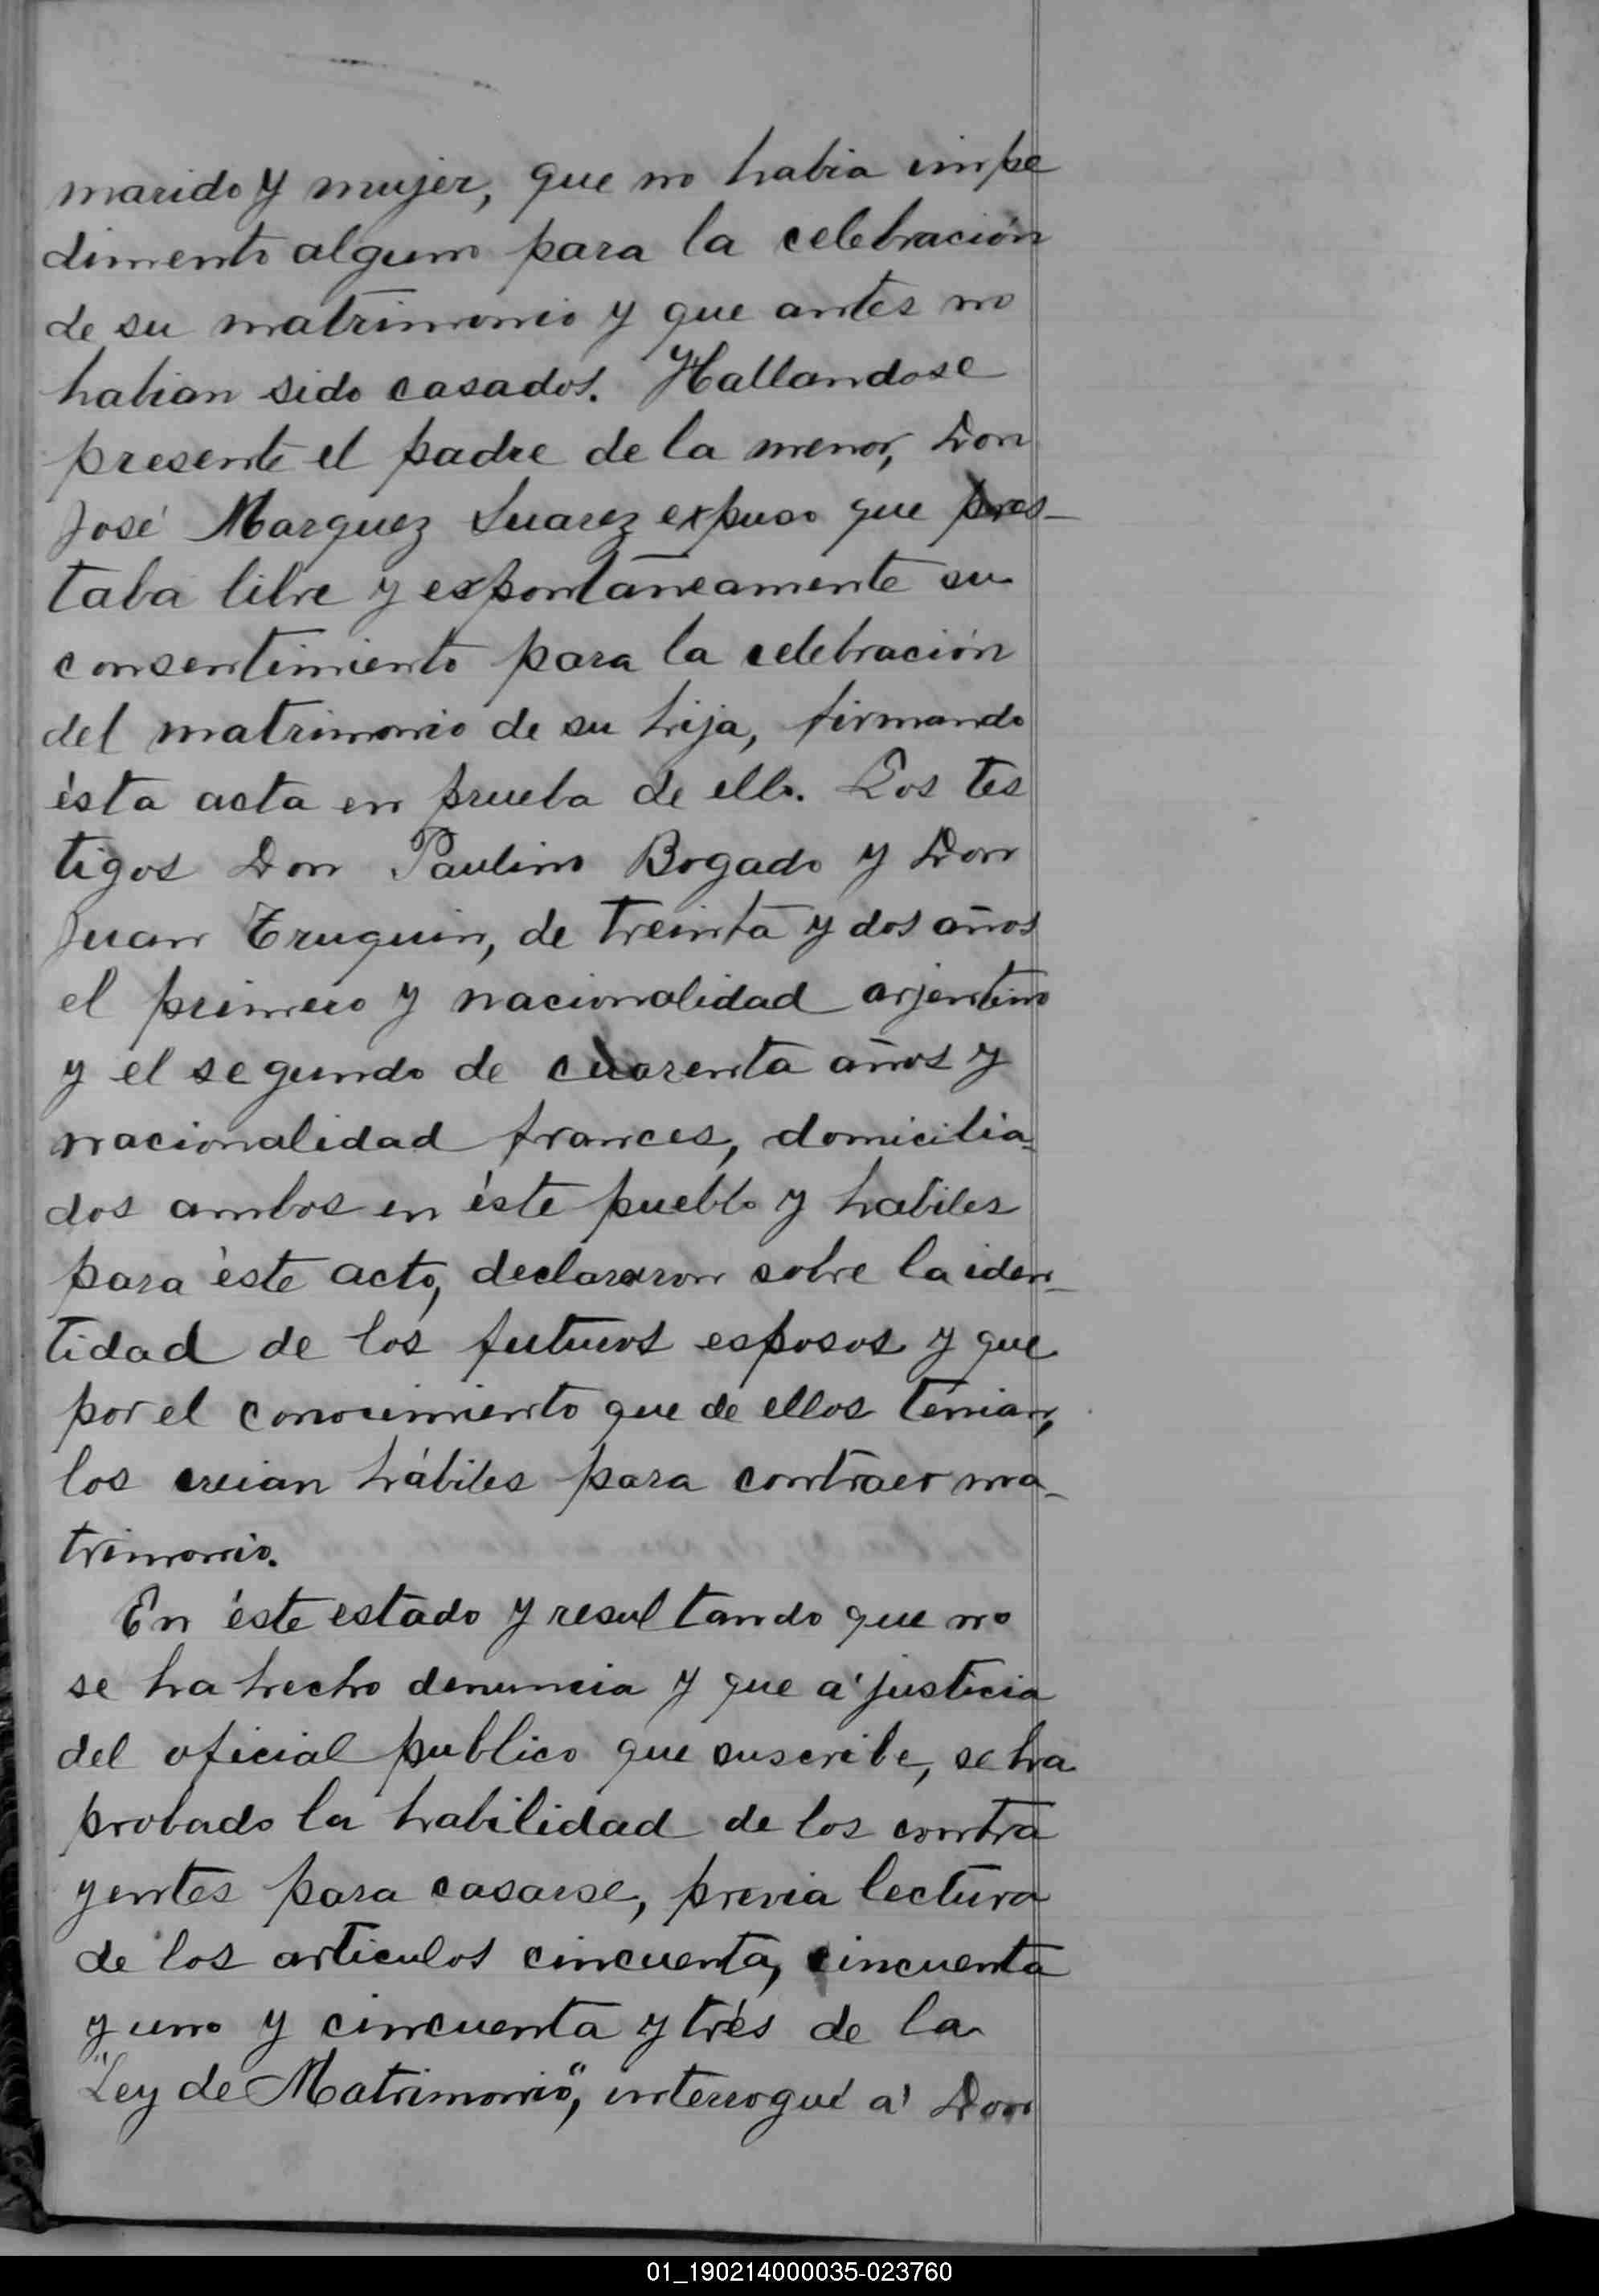 marido y mujer, que no habia impe
dimento alguno para la celebración
de su matrimonio y que antes no
habian sido casados. Hallandose
presente el padre de la menor, Don
José Marquez Suarez expuso que pres-
taba libre y expontáneamente su
consentimiento para la celebración
del matrimonio de su hija, firmando
ésta acta en prueba de ello. Los tes
tigos Don Paulino Bogado y Don
Juan Truquin, de treinta y dos años
el primero y nacionalidad arjentino
y el segundo de cuarenta años y
nacionalidad frances, domicilia-
dos ambos en éste pueblo y habiles
para éste acto, declararon sobre la iden-
tidad de los futuros esposos y que
por el conocimiento que de ellos tenian,
los creian hábiles para contraer ma-
trimonio.
En éste estado y resultando que no
se ha hecho denuncia y que a' justicia
del oficial publico que suscribe, se ha
probado la habilidad de los contra
yentes para casarse, previa lectura
de los articulos cincuenta, cincuenta
y uno y cincuenta y trés de la
"Ley de Matrimonio", interrogué a' Don
01_190214000035-023760